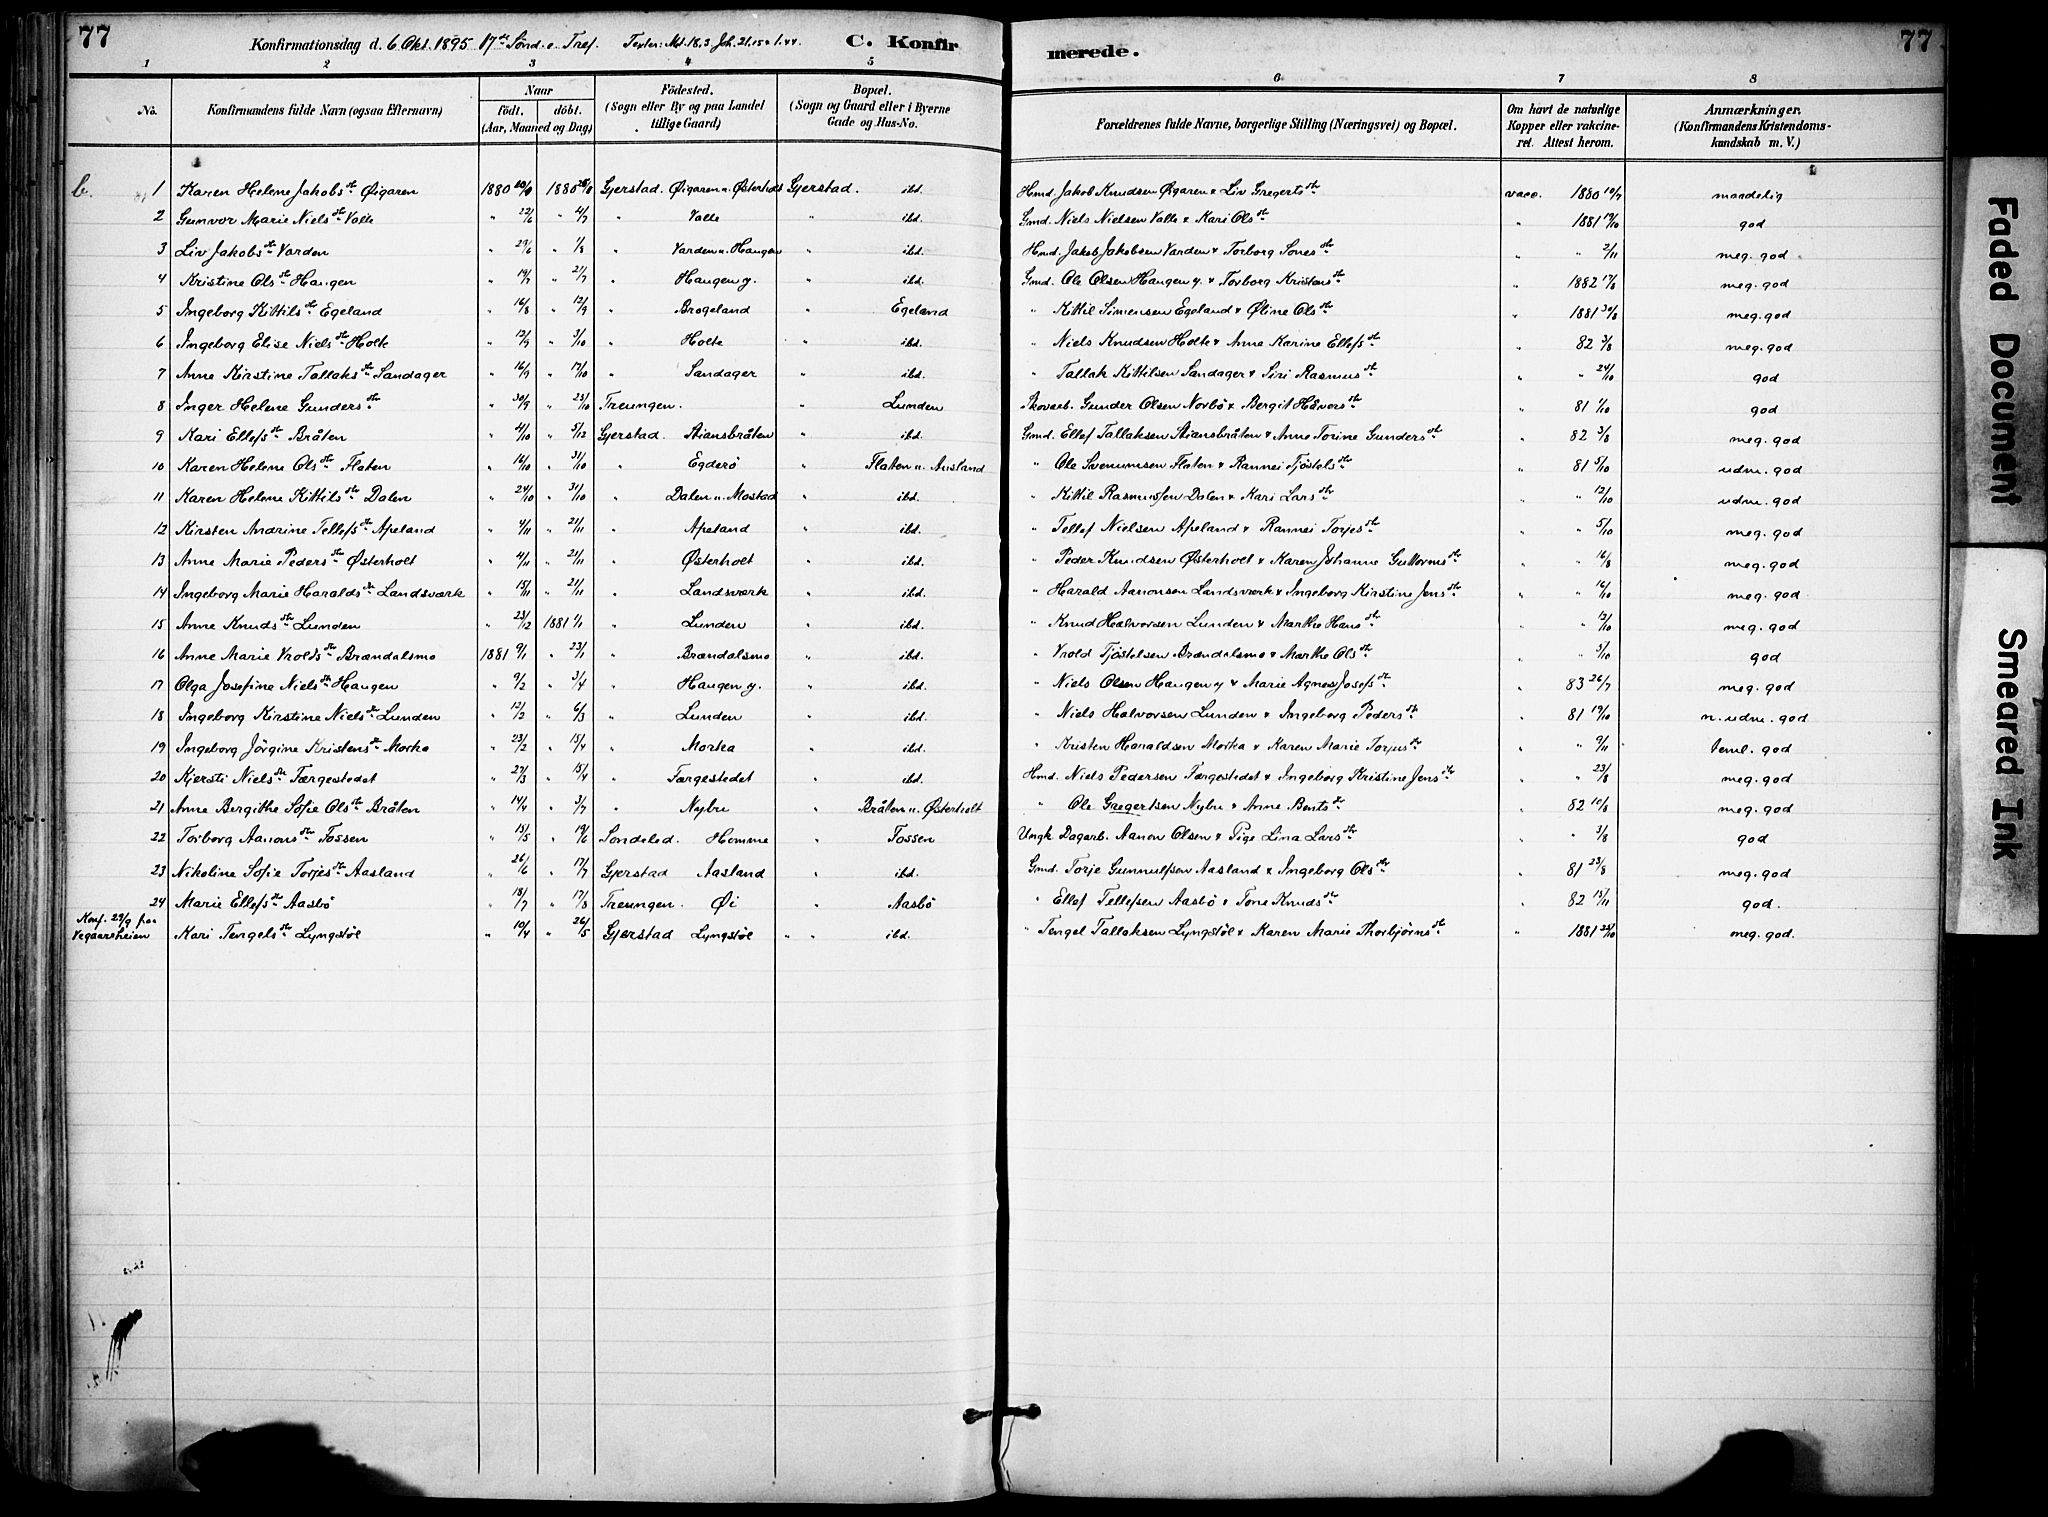 77
Konfirmationsdag d. 6 Okt. 1895 17de Sönd. e. Tref. Texter: Mt. 18.3 Joh. 21.15 C. Konfir
merede.
77
1 2 3 4 5 6 7 8
No. Konfirmandens fulde Navn (ogsaa Efternavn) Naar födt, döbt. (Aar, Maaned og Dag) Födested. (Sogn eller By og paa Landet tillige Gaard) Bopæl. (Sogn og Gaard eller i Byerne Gade og Hus-No. Forældrenes fulde Navne, borgerlige Stilling (Næringsvei) og Bopæl. Om havt de naturlige Kopper eller vakcineret. Attest herom. Anmærkninger. (Konfirmandens Kristendomskundskab m. V.)
b. 1 Karen Helene Jakobsdtr Øigaren 1880 1880 Gjerstad. Øigaren u. Østerholt Gjerstad. ibd. Hmd. Jakob Knudsen Øigaren & Liv Gregertsdtr vacc. 1880 10/7 maadelig
2 Gunvor Marie Nielsdtr Valle " 22/6 " 4/7 " Valle " ibd. Gmd. Niels Nielsen Valle & Kari Olsdtr " 1881 19/10 god
3 Liv Jakobsdtr Varden " 29/6 " 1/8 " Varden u. Haugen " ibd. Hmd. Jakob Jakobsen Varden & Torborg Sonesdtr " " 2/11 meg. god
4 Kristine Olsdtr Haugen " 19/7 " 21/7 " Haugen y. " ibd. Gmd. Ole Olsen Haugen y. & Torborg Kristensdtr " 1882 17/8 meg. god
5 Ingeborg Kittilsdtr Egeland " 16/8 " 12/9 " Brogeland " Egeland " Kittil Simensen Egeland & Oline Olsdtr " 1881 30/8 meg. god
6 Ingeborg Elise Nielsdtr Holte " 12/9 " 3/10 " Holte " ibd. " Niels Knudsen Holte & Anne Karine Ellefsdtr " 82 3/8 meg. god
7 Anne Kirstine Tallaksdtr Sandager " 16/9 " 17/10 " Sandager " ibd. " Tallak Kittilsen Sandager & Siri Rasmusdtr " " 24/10 god
8 Inger Helene Gundersdtr " 30/9 " 23/10 Treungen. " Lunden Skovarb. Gunder Olsen Norbö & Bergit Håvorsdtr " 81 1/10 god
9 Kari Ellefsdtr Bråten " 4/10 " 5/12 Gjerstad. Stiansbråten " ibd. Gmd. Ellef Tallaksen Stiansbråten & Anne Torine Gundersdtr " 82 3/8 meg. god
10 Karen Helene Olsdtr Flaten " 16/10 " 31/10 " Egderö " Flaten u. Ausland " Ole Svenumsen Flaten & Rannei Tjöstelsdtr " 81 5/10 udm. god
11 Karen Helene Kittilsdtr Dalen " 24/10 " 31/10 " Dalen u. Mostad " ibd. " Kittil Rasmussen Dalen & Kari Larsdtr " " 12/10 udm. god
12 Kirsten Andrine Tellefsdtr Apeland " 4/11 " 21/11 " Apeland " ibd. " Tellef Nielsen Apeland & Rannei Torjesdtr " " 5/10 meg. god
13 Anne Marie Pedersdtr Østerholt " 4/11 " 21/11 " Østerholt " ibd. " Peder Knudsen Østerholt & Karen Johanne Guttormsdtr " " 16/8 meg. god
14 Ingeborg Marie Haraldsdtr Landsværk " 15/11 " 21/11 " Landsværk " ibd. " Harald Aanonsen Landsværk & Ingeborg Kirstine Jensdtr " " 16/10 meg. god
15 Anne Knudsdtr Lunden " 23/12 1881 1/1 " Lunden " ibd. " Knud Halvorsen Lunden & Marthe Hansdtr " " 12/10 meg. god
16 Anne Marie Vroldsdtr Brændalsmo 1881 9/1 " 23/1 " Brændalsmo " ibd. " Vrold Tjöstelsen Brændalsmo & Marthe Olsdtr " " 5/10 god
17 Olga Josefine Nielsdtr Haugen " 9/2 " 3/4 " Haugen y. " ibd. " Niels Olsen Haugen y & Marie Agnes Josefsdtr " 83 26/7 meg. god
18 Ingeborg Kirstine Nielsdtr Lunden " 12/2 " 6/3 " Lunden " ibd. " Niels Halvorsen Lunden & Ingeborg Pedersdtr " 81 19/10 n. udm. god
19 Ingeborg Jörgine Kristensdtr Morka " 23/2 " 15/4 " Morka " ibd. " Kristen Haraldsen Morka & Karen Marie Torjusdtr " " 9/11 teml. god
20 Kjersti Nielsdtr Færgestedet " 27/3 " 15/4 " Færgestedet " ibd. Hmd. Niels Pedersen Færgestedet & Ingeborg Kristine Jensdtr " " 23/8 meg. god
21 Anne Bergithe Sofie Olsdtr Bråten " 14/4 " 3/7 " Nybu " Bråten u. Østerholt " Ole Gregertsen Nybu & Anne Bentsdtr " 82 10/8 meg. god
22 Torborg Aanonsdtr Fossen " 15/5 " 19/6 Söndeled. Homme " Fossen Ungk. Dagarb. Aanon Olsen & Pige Lina Larsdtr " " 3/8 god
23 Nikoline Sofie Torjesdtr Aasland " 26/6 " 17/7 Gjerstad Aasland " ibd. Gmd. Torje Gunnulfsen Aasland & Ingeborg Olsdtr " 81 23/8 meg. god
24 Marie Ellefsdtr Aasbö " 18/7 " 17/8 Treungen. Øi " Aasbö " Ellef Tellefsen Aasbö & Tone Knudsdtr " 82 15/11 god.
Konf. 29/9 paa Vegaarsheien Kari Tengelsdtr Lyngstöl " 10/4 " 26/5 Gjerstad Lyngstöl " " ibd. " Tengel Tallaksen Lyngstöl & Karen Marie Thorbjørnsdtr " 1881 25/10 meg. god.
Faded Document
Smeared Ink